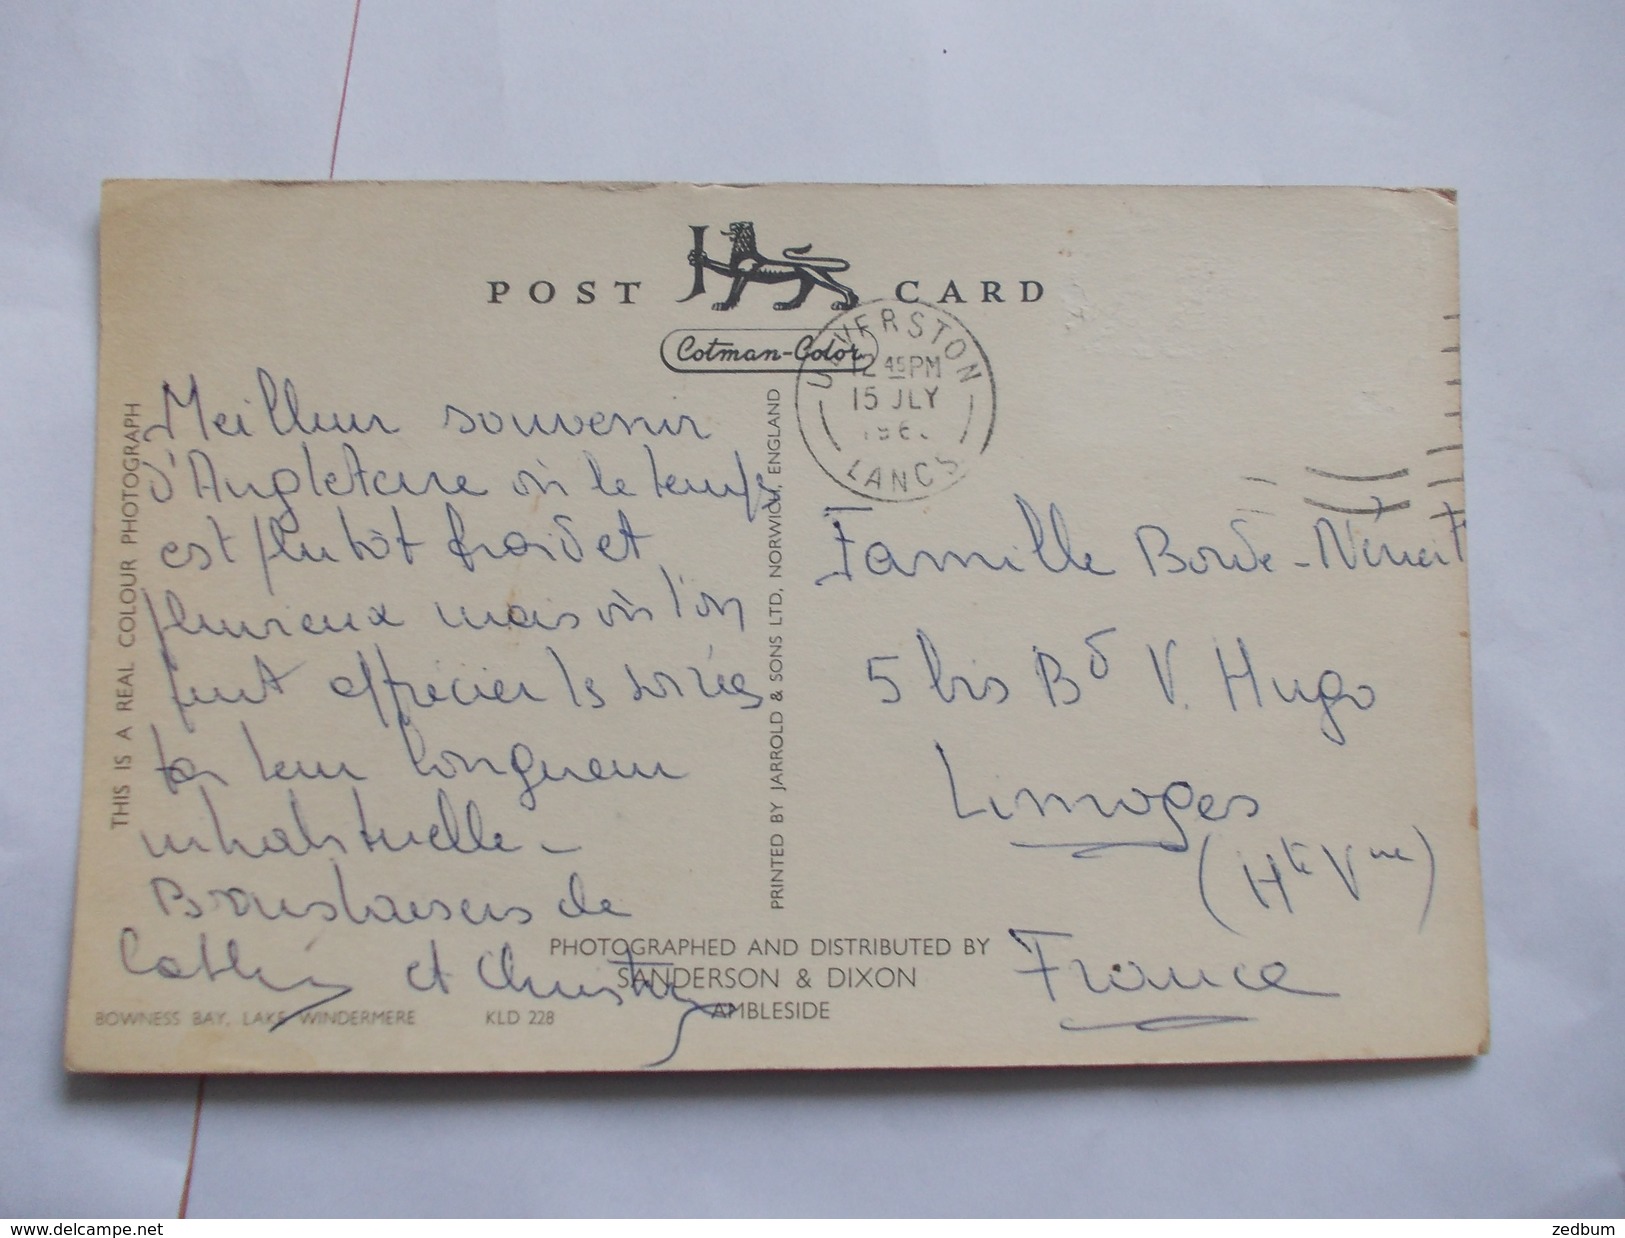 POST CARD
Cotman-Color
ULVERSTON
12 45 PM
15 JLY
196
LANCS
THIS IS A REAL COLOUR PHOTOGRAPH
Meilleur souvenir
d'Angleterre où le temps
est plutôt froid et
pluvieux mais où l'on
peut apprécier les soirées
par leur longueur
inhabituelle -
Bons baisers de
et Christine
PRINTED BY JARROLD & SONS LTD, NORWICH, ENGLAND
Famille Borde-
5 bis Bd V. Hugo
Limoges
(Hte Vne)
France
PHOTOGRAPHED AND DISTRIBUTED BY
SANDERSON & DIXON
AMBLESIDE
BOWNESS BAY, LAKE WINDERMERE KLD 228
www.delcampe.net
zedbum